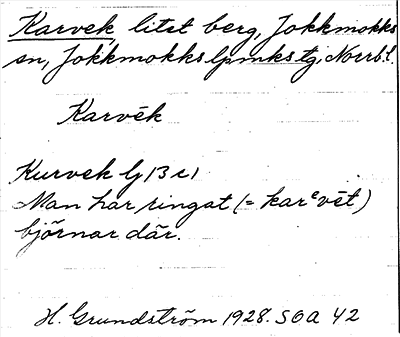 Karvek, litet berg, Jokkmokks
sn, Jokkmokks lpmks tg, Norrb. l.
Karvēk
Kurvek lj 13 c)
Man har ringat (= karᵉvēt)
björnar där.
H. Grundström 1928. SOA 42